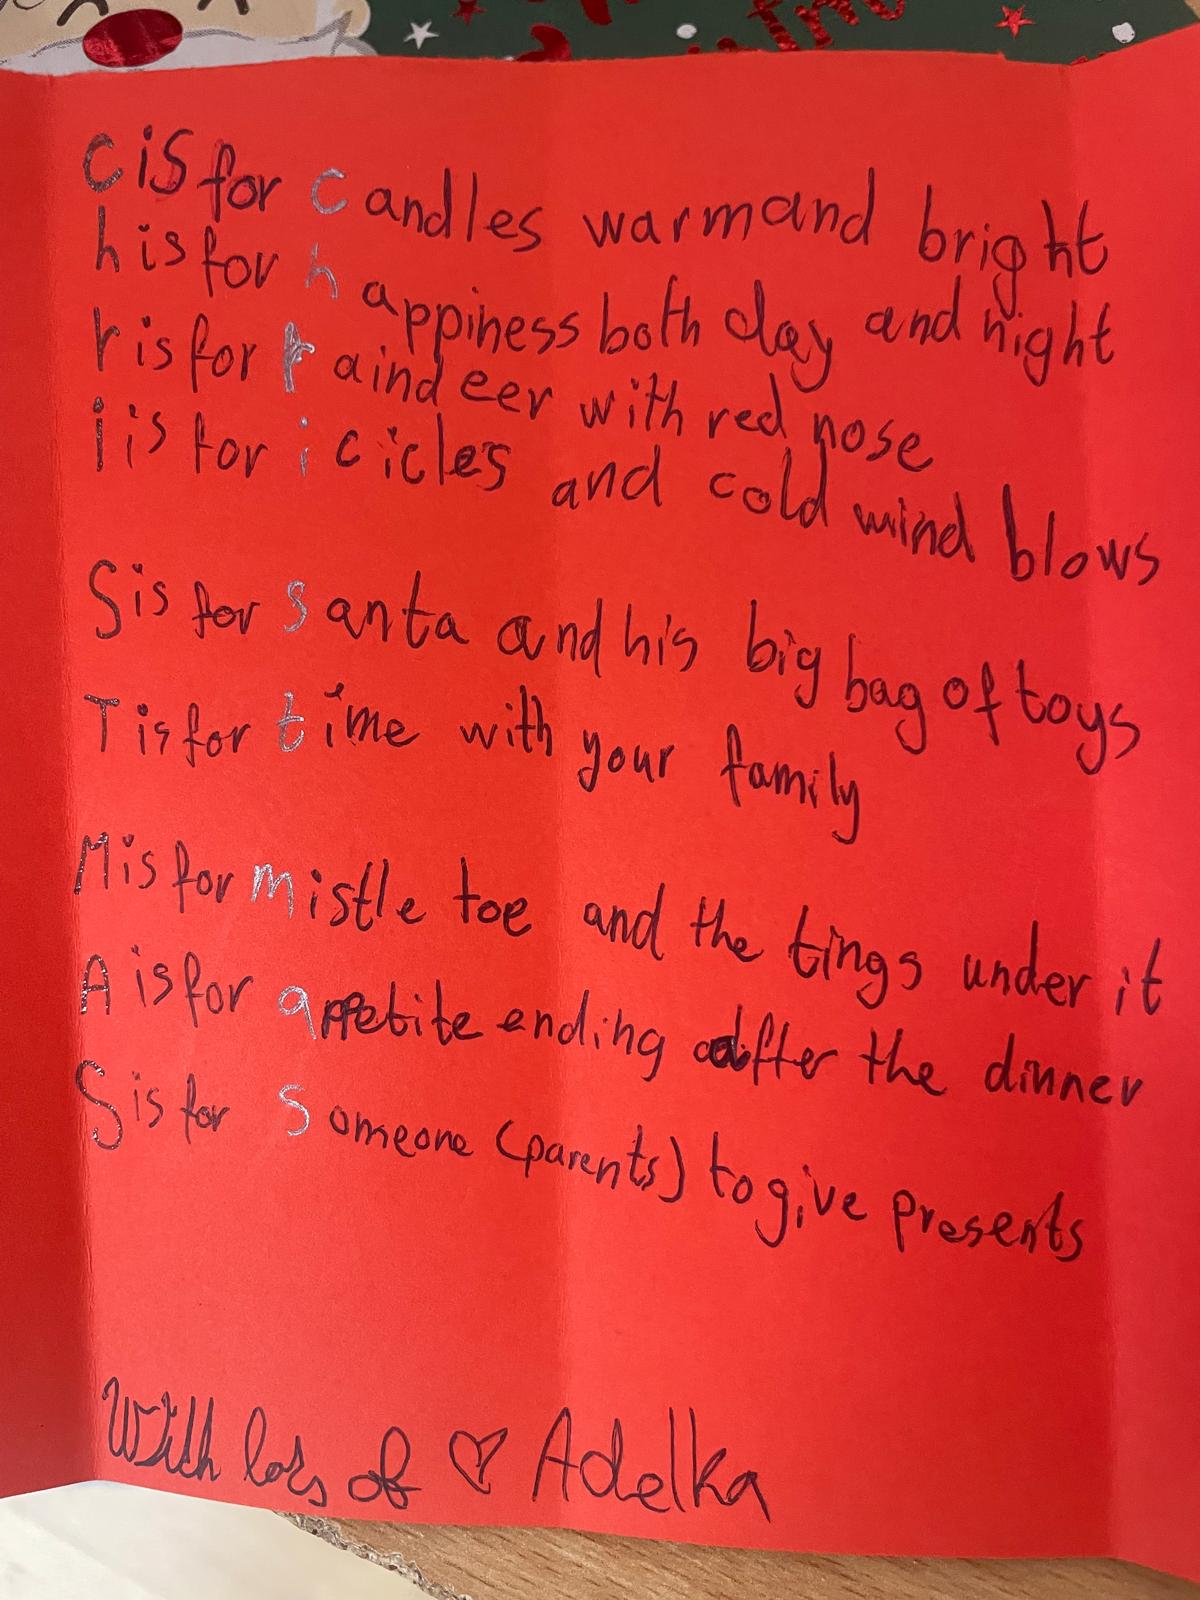 C is for candles warm and bright
h is for happiness both day and night
r is for raindeer with red nose
i is for icicles and cold wind blows
S is for santa and his big bag of toys
T is for time with your family
M is for mistle toe and the tings under it
A is for appetite ending after the dinner
S is for someone (parents) to give presents
With lots of ♡ Adelka